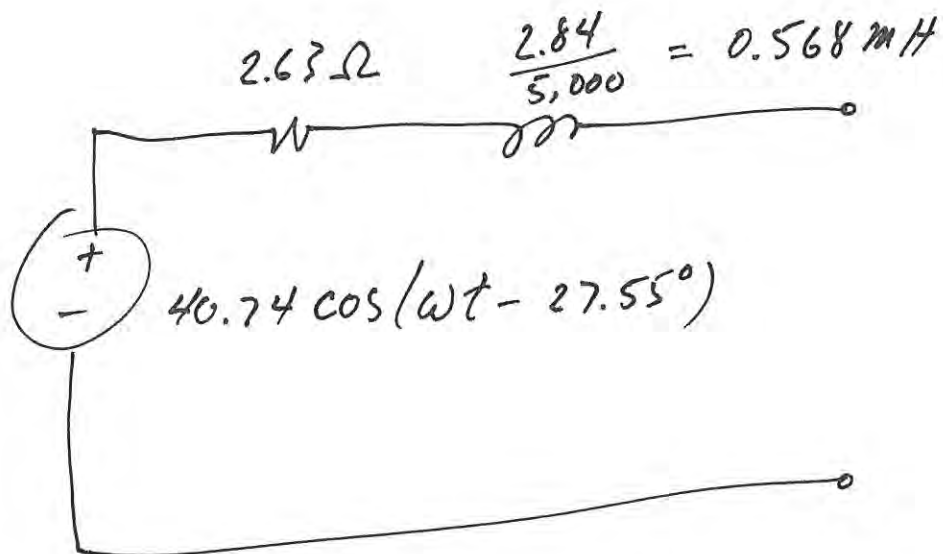 2.63 Ω
2.84
5,000
= 0.568 mH
+
-
40.74 cos(ωt - 27.55°)